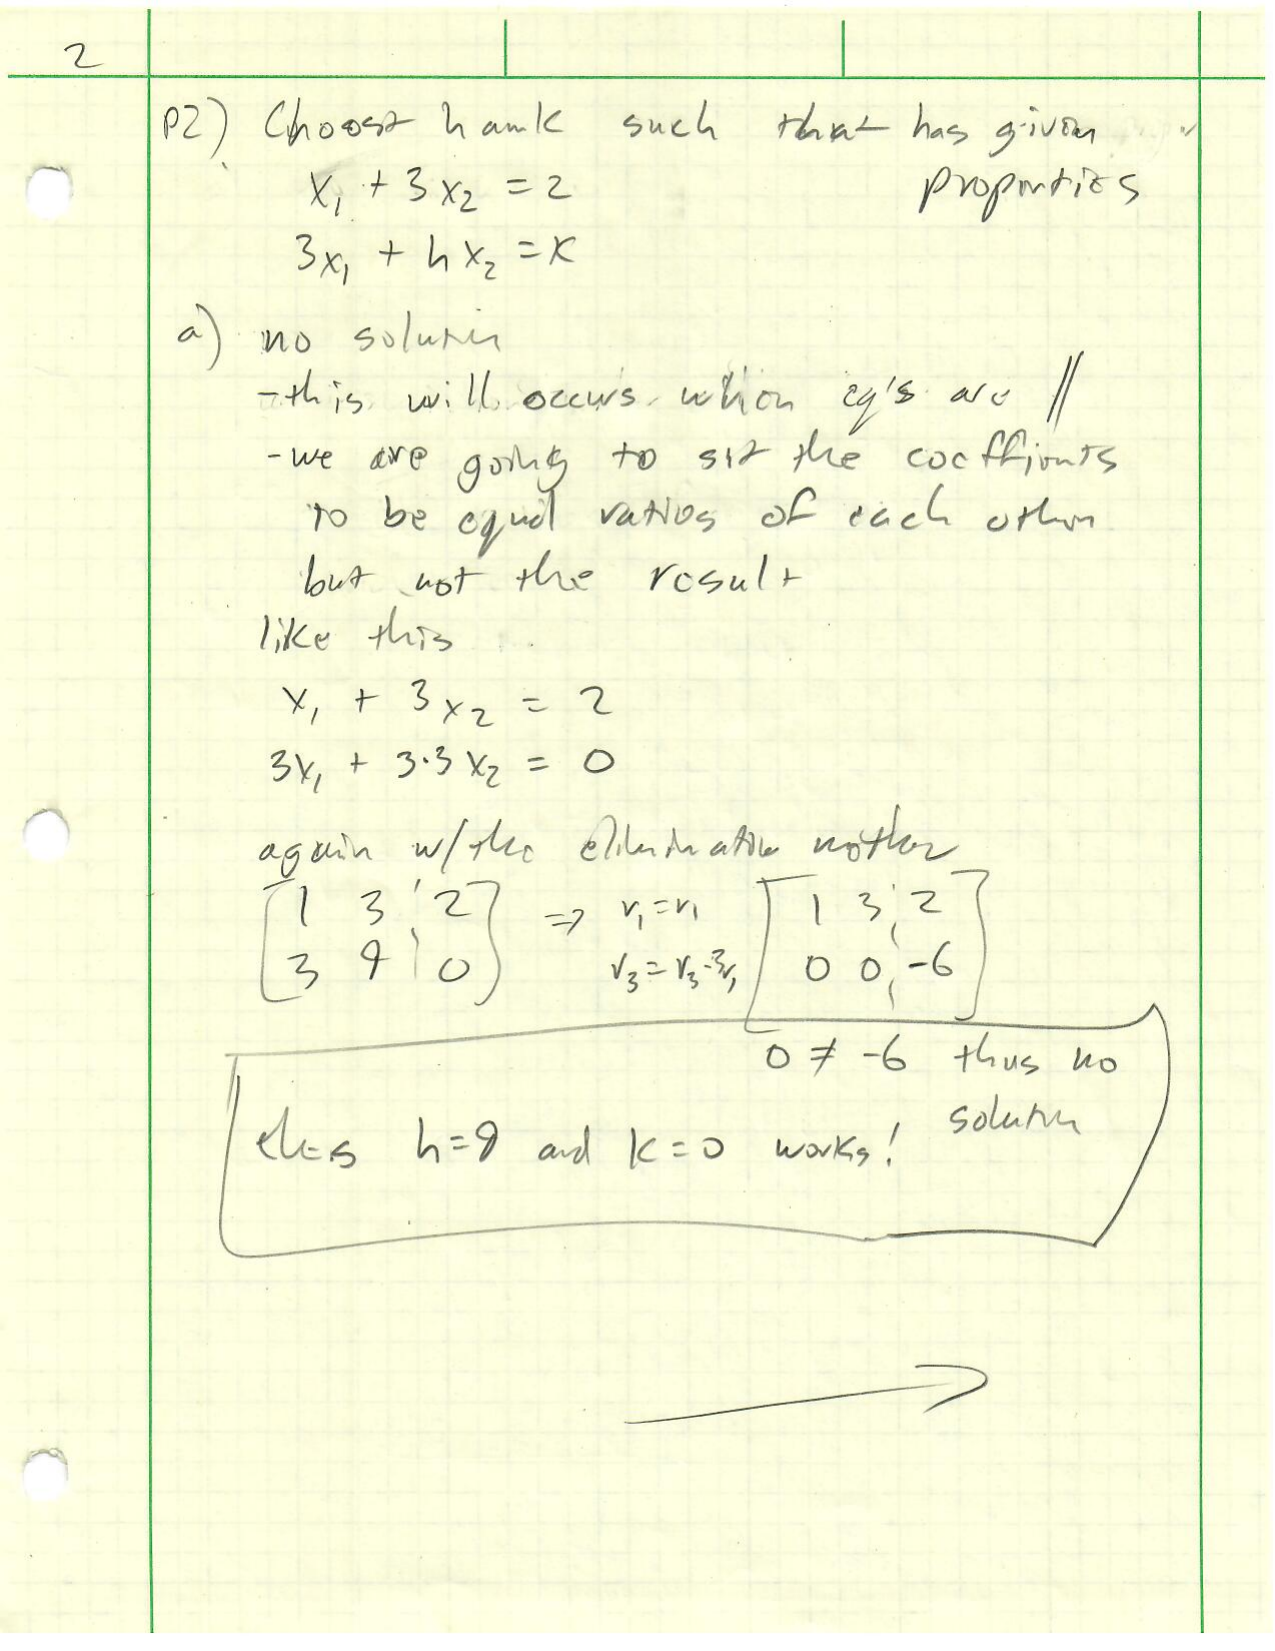 2
P2) Choose h and k such that has given
properties
x₁ + 3x₂ = 2
3x₁ + hx₂ = k
a) no solution
- this will occurs when eq's are //
- we are going to set the coefficients
to be equal ratios of each other
but not the result
like this
x₁ + 3x₂ = 2
3x₁ + 3·3x₂ = 0
again w/ the elimination method
[1 3 ¦ 2] => r₁=r₁ [1 3 ¦ 2]
[3 9 ¦ 0] r₃=r₃-3r₁ [0 0 ¦ -6]
0 ≠ -6 thus no
solution
h=9 and k=0 works!